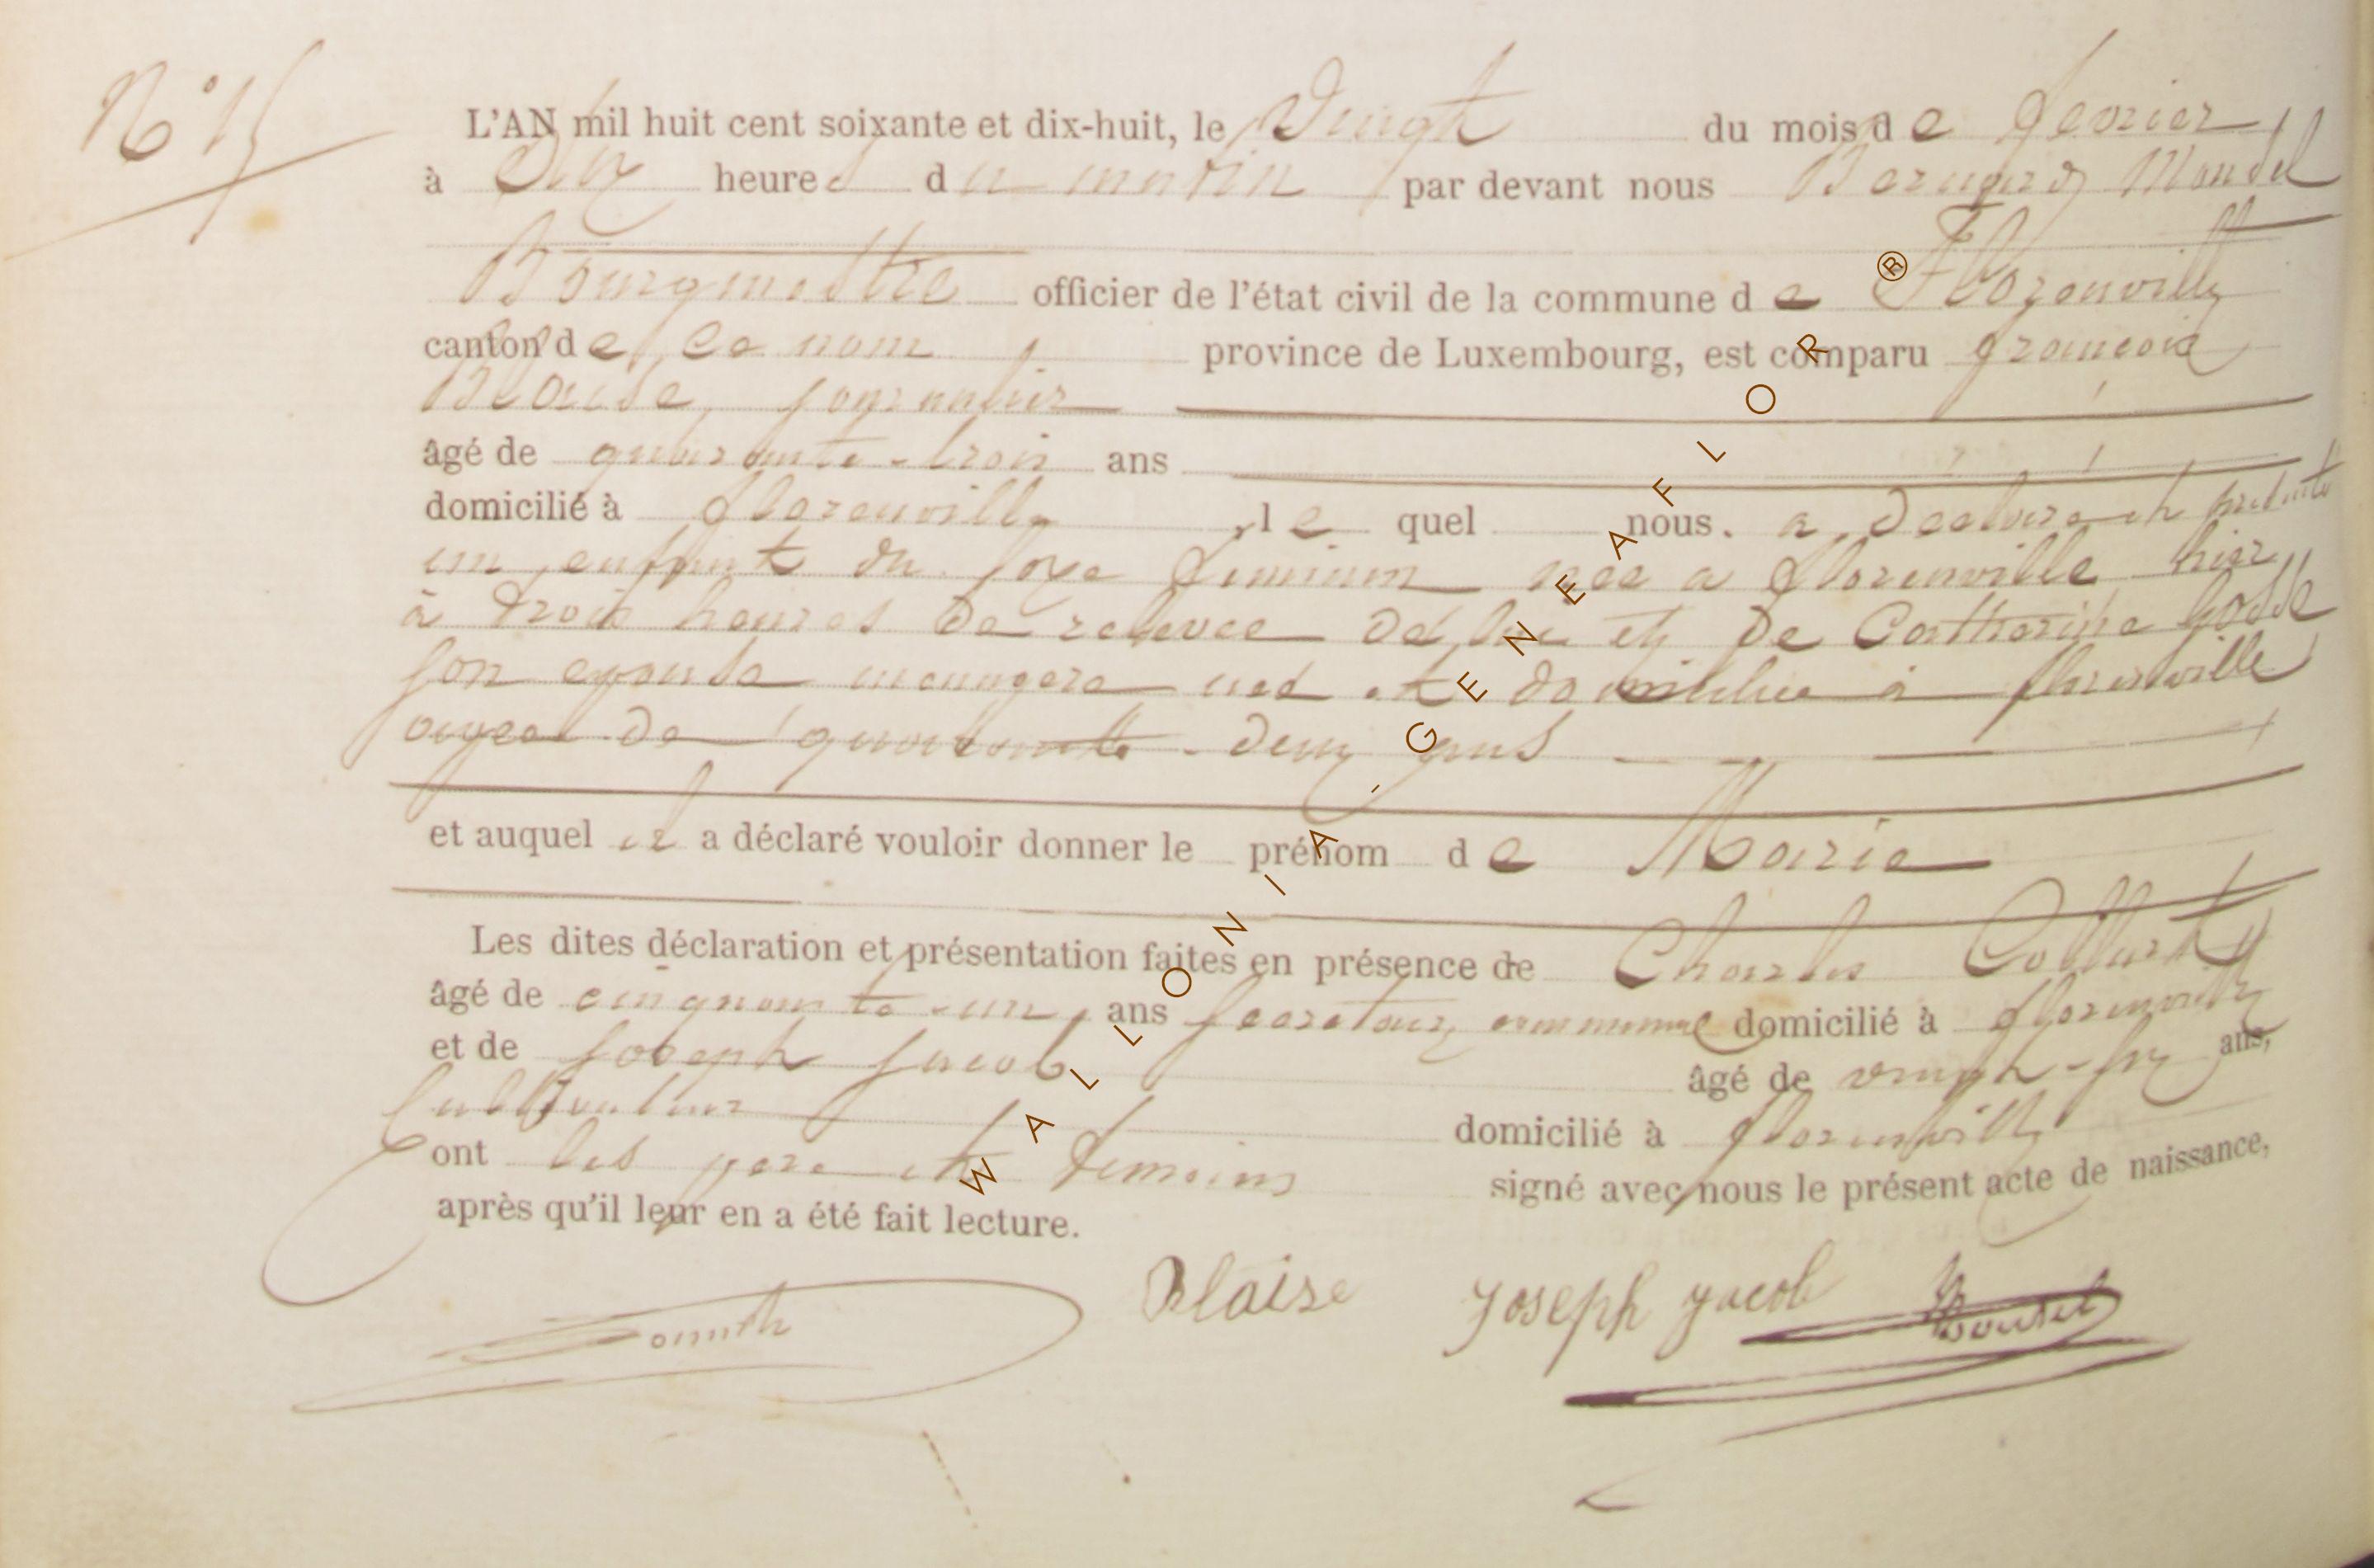 N° 15
L'AN mil huit cent soixante et dix-huit, le Vingt du mois de fevrier
à Dix heures du matin par devant nous Bernard
Bourgmestre officier de l'état civil de la commune de Florenville
canton de ce nom province de Luxembourg, est comparu françois
Blaise, journalier
âgé de quarante-trois ans
domicilié à florenville, le quel nous a déclaré et présenté
un enfant du sexe feminin née a florenville hier
à trois heures de relevée de lui et de Catherine Gosse
son epouse menagere née et domiciliée à florenville
agée de quarante-deux ans
et auquel il a déclaré vouloir donner le prénom de Marie
Les dites déclaration et présentation faites en présence de Charles
âgé de cinquante-un, ans Secretaire communal domicilié à florenville
et de Joseph Jacob âgé de vingt-six ans,
Cultivateur domicilié à florenville
ont les pere et temoins signé avec nous le présent acte de naissance,
après qu'il leur en a été fait lecture.
Blaise Joseph Jacob
WALLONIA - GENEAFLOR ®